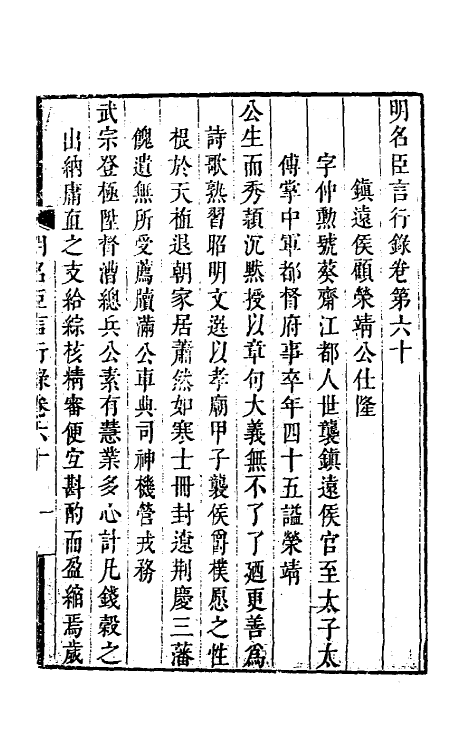 明名臣言行錄卷第六十
鎮遠侯顧榮靖公仕隆
字仲勲號葵齋江都人世襲鎮遠侯官至太子太
傅掌中軍都督府事卒年四十五謚榮靖
公生而秀頴沉黙授以章句大義無不了了廼更善為
詩歌熟習昭明文選以孝廟甲子襲侯爵樸愿之性
根於天植退朝家居蕭然如寒士冊封遼荆慶三藩
餽遺無所受薦牘滿公車典司神機營戎務
武宗登極陞督漕總兵公素有慧業多心計凡錢穀之
出納庸直之支給綜核精審便宜斟酌而盈縮焉歲
明名臣言行錄卷六十 一